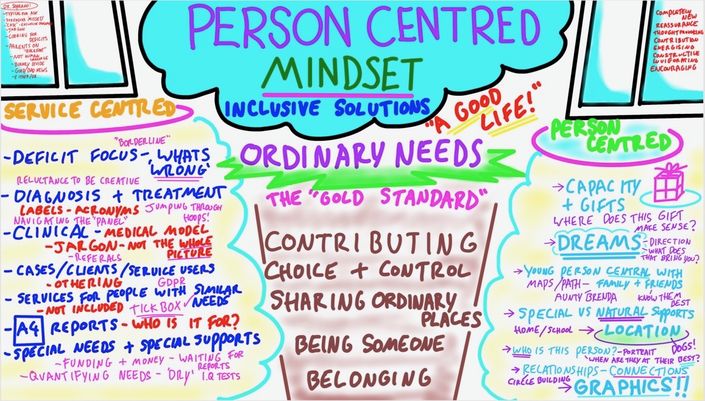 PERSON CENTRED
MINDSET
INCLUSIVE SOLUTIONS
"A GOOD
LIFE!"
COMPLETELY
NEW
REASSURANCE
THOUGHT PROVOKING
CONTRIBUTION
ENERGISING
CONSTRUCTIVE
INVIGORATING
ENCOURAGING
SERVICE CENTRED
"BORDERLINE"
- DEFICIT FOCUS - WHATS
'WRONG'
RELUCTANCE TO BE CREATIVE
- DIAGNOSIS + TREATMENT
LABELS - ACRONYMS
JUMPING THROUGH
HOOPS!
NAVIGATING THE "PANEL"
- CLINICAL - MEDICAL MODEL
- JARGON - NOT THE WHOLE
PICTURE
- REFERRALS
- CASES/CLIENTS/SERVICE USERS
- OTHERING
GDPR
- SERVICES FOR PEOPLE WITH SIMILAR
NEEDS
- NOT INCLUDED
TICK BOX ✓
- A4 REPORTS - WHO IS IT FOR?
- SPECIAL NEEDS + SPECIAL SUPPORTS
- FUNDING + MONEY - WAITING FOR
REPORTS
- QUANTIFYING NEEDS - 'DRY' I.Q TESTS
ORDINARY NEEDS
THE "GOLD STANDARD"
CONTRIBUTING
CHOICE + CONTROL
SHARING ORDINARY
PLACES
BEING SOMEONE
BELONGING
PERSON
CENTRED
→ CAPACITY
+ GIFTS
WHERE DOES THIS GIFT
MAKE SENSE?
→ DREAMS
- DIRECTION
- WHAT DOES
THAT BRING YOU?
→ YOUNG PERSON CENTRAL WITH
MAPS/PATH - FAMILY + FRIENDS
AUNTY BRENDA
KNOW THEM
BEST
→ SPECIAL VS NATURAL SUPPORTS
HOME/SCHOOL → LOCATION
→ WHO IS THIS PERSON? - PORTRAIT
DOGS!
WHEN ARE THEY AT THEIR BEST?
→ RELATIONSHIPS - CONNECTIONS
CIRCLE BUILDING
→ GRAPHICS!!